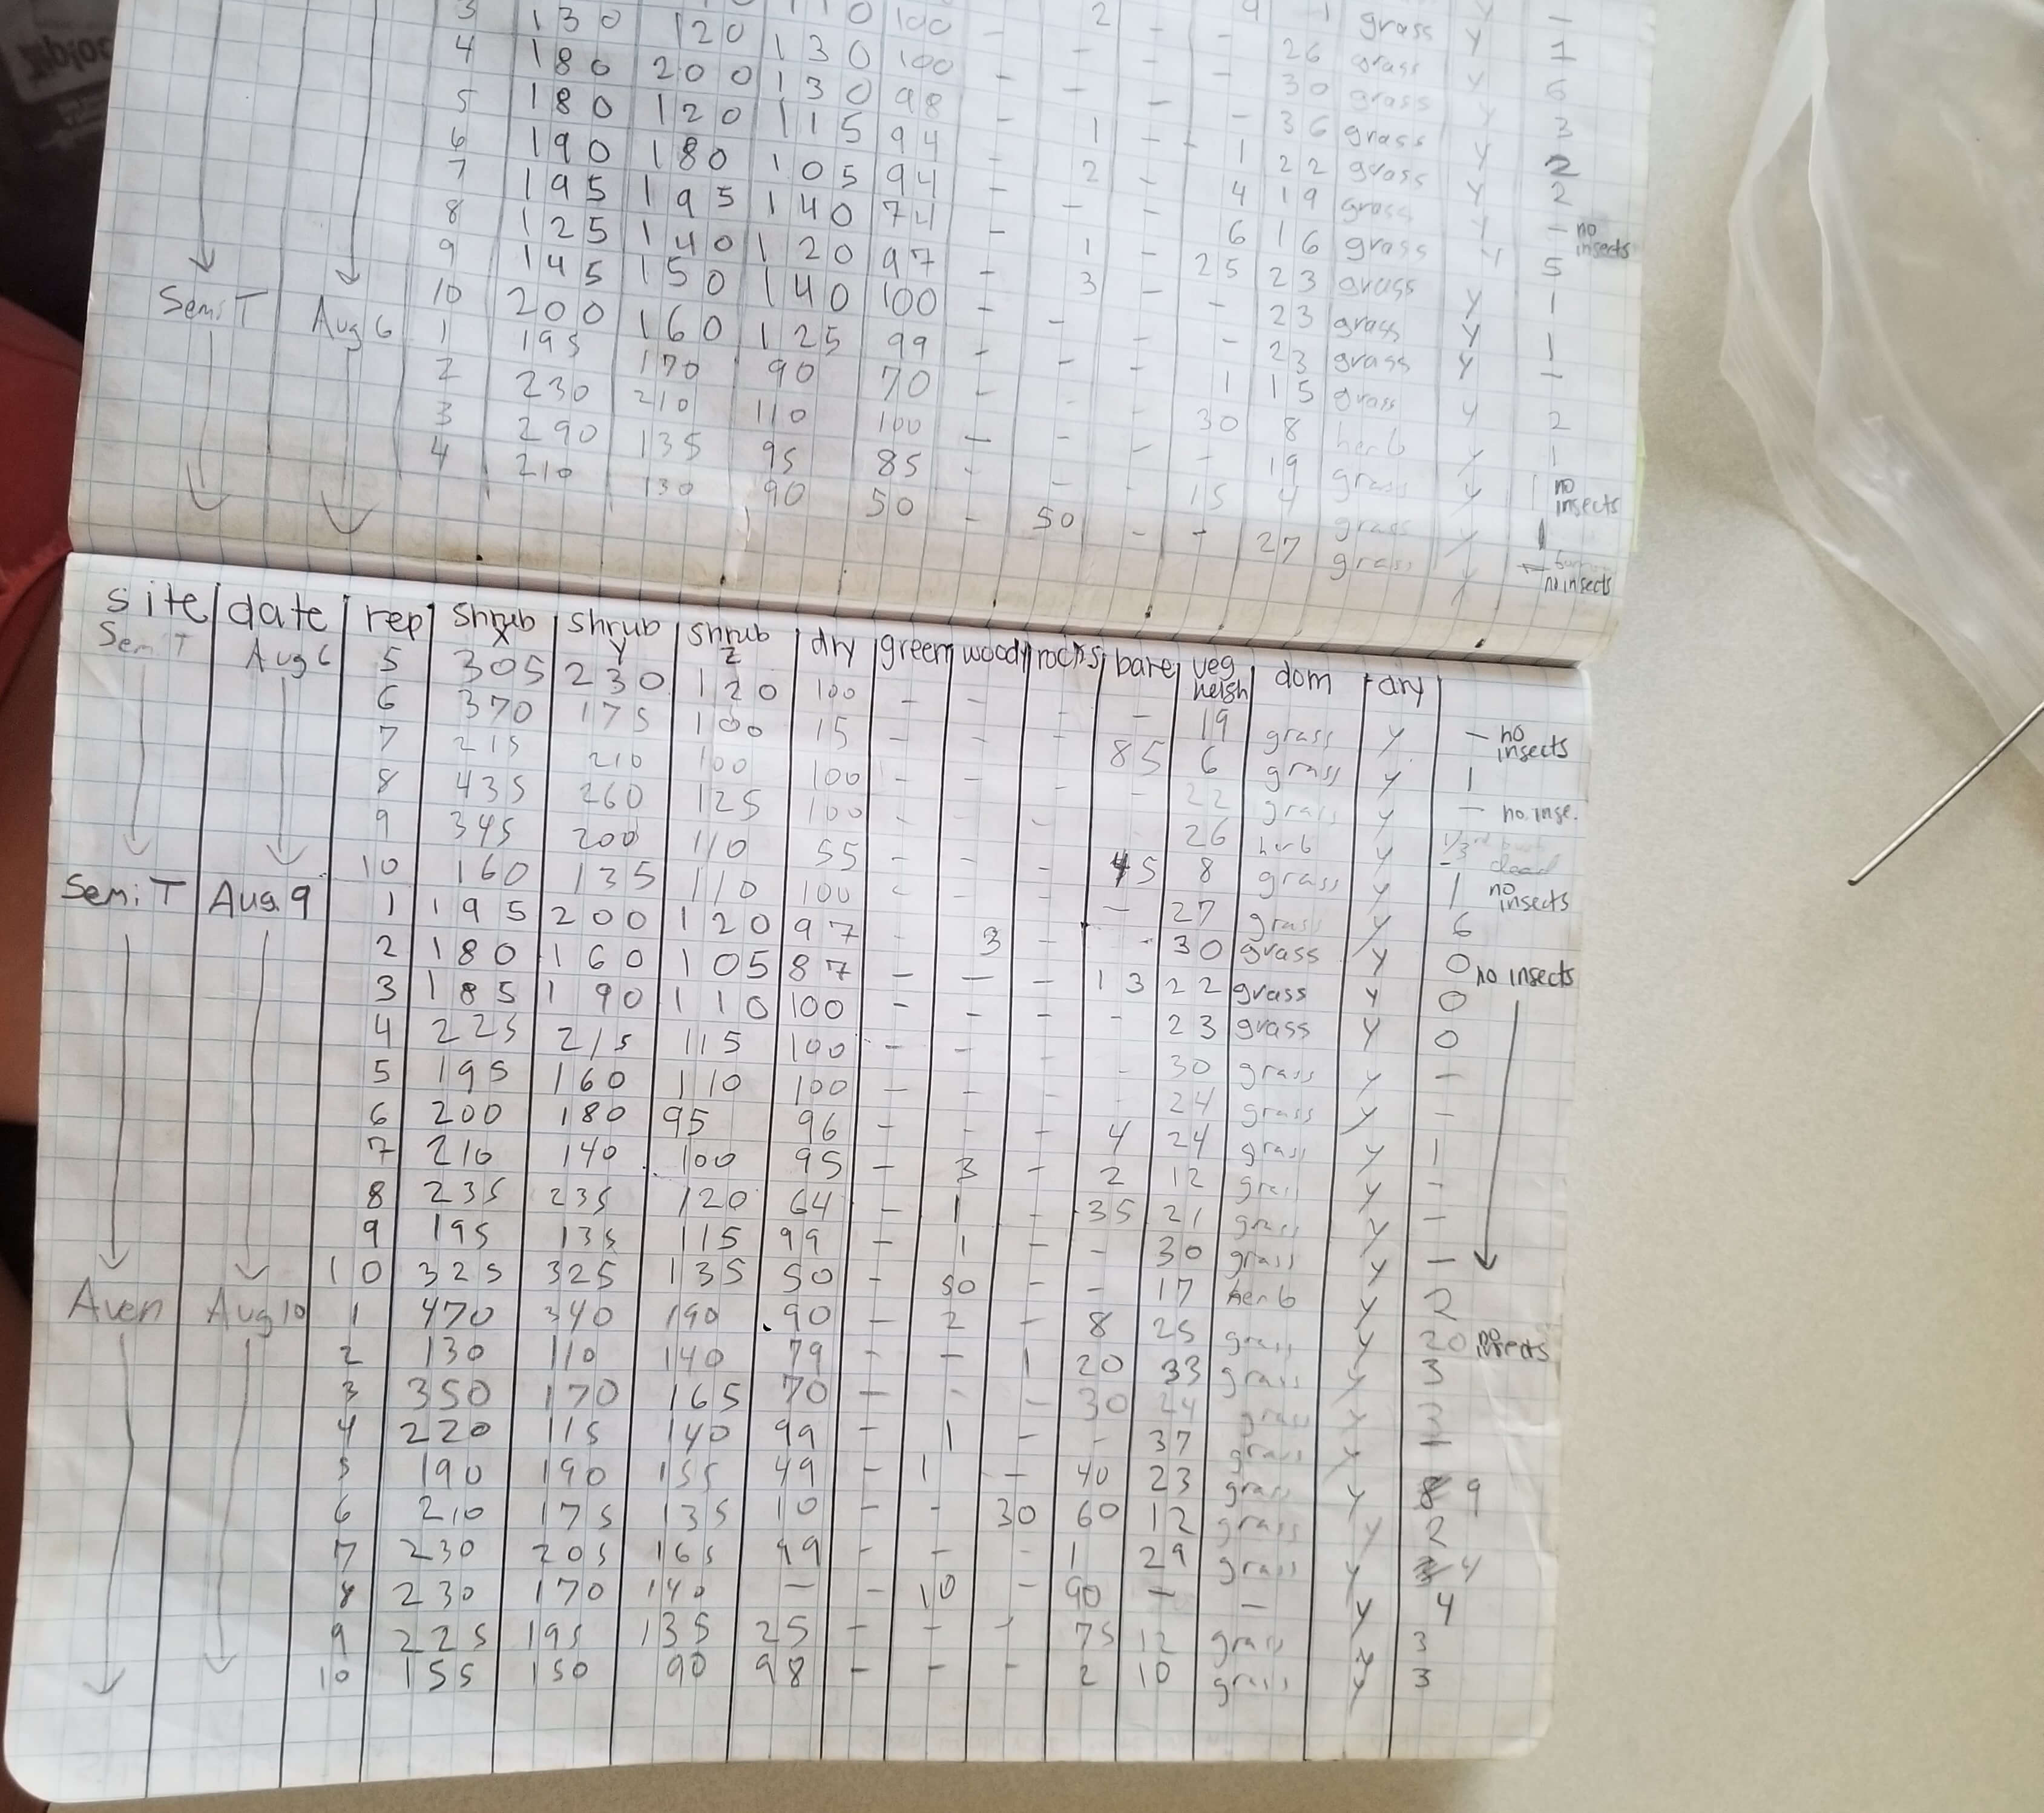 2 - 9 1 grass y 1
26 grass y 6
110 100 - - - - 30 grass y 3
3 130 120 130 100 - - - - 36 grass y 2
4 180 200 130 98 - 1 - 1 22 grass y 2
5 180 120 115 94 - 2 - 4 19 grass y - no insects
6 190 180 105 94 - - - 6 16 grass y 5
7 195 195 140 74 - 1 - 25 23 grass y 1
8 125 140 120 97 - 3 - - 23 grass y 1
9 145 150 140 100 - - - - 23 grass y -
10 200 160 125 99 - - - 1 15 grass y 2
Semi T Aug 6 1 195 170 90 70 - - - 30 8 herb y 1
2 230 210 110 100 - - - - 19 grass y 1 no insects
3 290 135 95 85 - - - 15 4 grass y 1
4 210 130 90 50 - 50 - - 27 grass y - no insects
site date rep shrub x shrub y shrub z dry green woody rocks bare veg heigh dom dry
Semi T Aug 6 5 305 230 120 100 - - - - 19 grass y - no insects
6 370 175 100 15 - - - 85 6 grass y 1
7 215 210 100 100 - - - - 22 grass y - no inse.
8 435 260 125 100 - - - - 26 herb y 1/3 dead
9 345 200 110 55 - - - 45 8 grass y 1 no insects
10 160 135 110 100 - - - - 27 grass y 6
Semi T Aug 9 1 195 200 120 97 - 3 - - 30 grass y 0 no insects
2 180 160 105 87 - - - 13 22 grass y 0
3 185 190 110 100 - - - - 23 grass y 0
4 225 215 115 100 - - - - 30 grass y -
5 195 160 110 100 - - - - 24 grass y -
6 200 180 95 96 - - - 4 24 grass y 1
7 210 140 100 95 - 3 - 2 12 grass y -
8 235 235 120 64 - 1 - 35 21 grass y -
9 195 135 115 99 - 1 - - 30 grass y -
10 325 325 135 50 - 50 - - 17 herb y 2
Aven Aug 10 1 470 340 190 90 - 2 - 8 25 grass y 20 no insects
2 130 110 140 79 - - 1 20 33 grass y 3
3 350 170 165 70 - - - 30 24 grass y 3
4 220 115 140 99 - 1 - - 37 grass y -
5 190 190 155 49 - 1 - 40 23 grass y 9
6 210 175 135 10 - - 30 60 12 grass y 2
7 230 205 165 99 - - - 1 29 grass y 4
8 230 170 140 - - 10 - 90 - - y 4
9 225 195 135 25 - - - 75 12 grass y 3
10 155 150 90 98 - - - 2 10 grass y 3